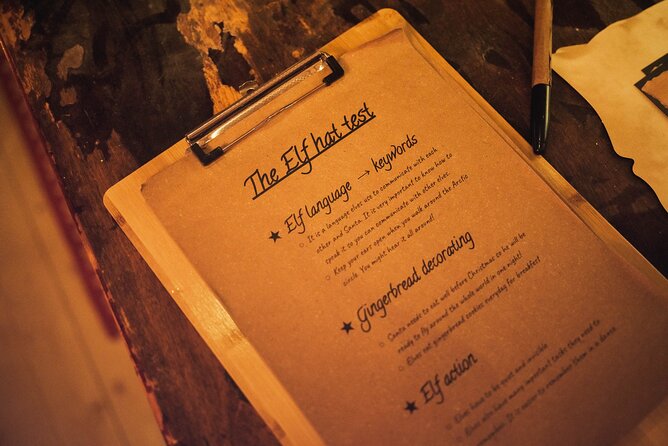 The Elf hat test
★ Elf language → keywords
○ It is a language elves use to communicate with each
other and Santa. It is very important to know how to
speak it so you can communicate with other elves
○ Keep your ears open when you walk around the Arctic
circle. You might hear it all around!
★ Gingerbread decorating
○ Santa needs to eat well before Christmas so he will be
ready to fly around the whole world in one night!
○ Elves eat gingerbread cookies everyday for breakfast
★ Elf action
○ Elves have to be quiet and invisible
○ Elves also have many important tasks they need to
remember. It is easier to remember them in a dance.